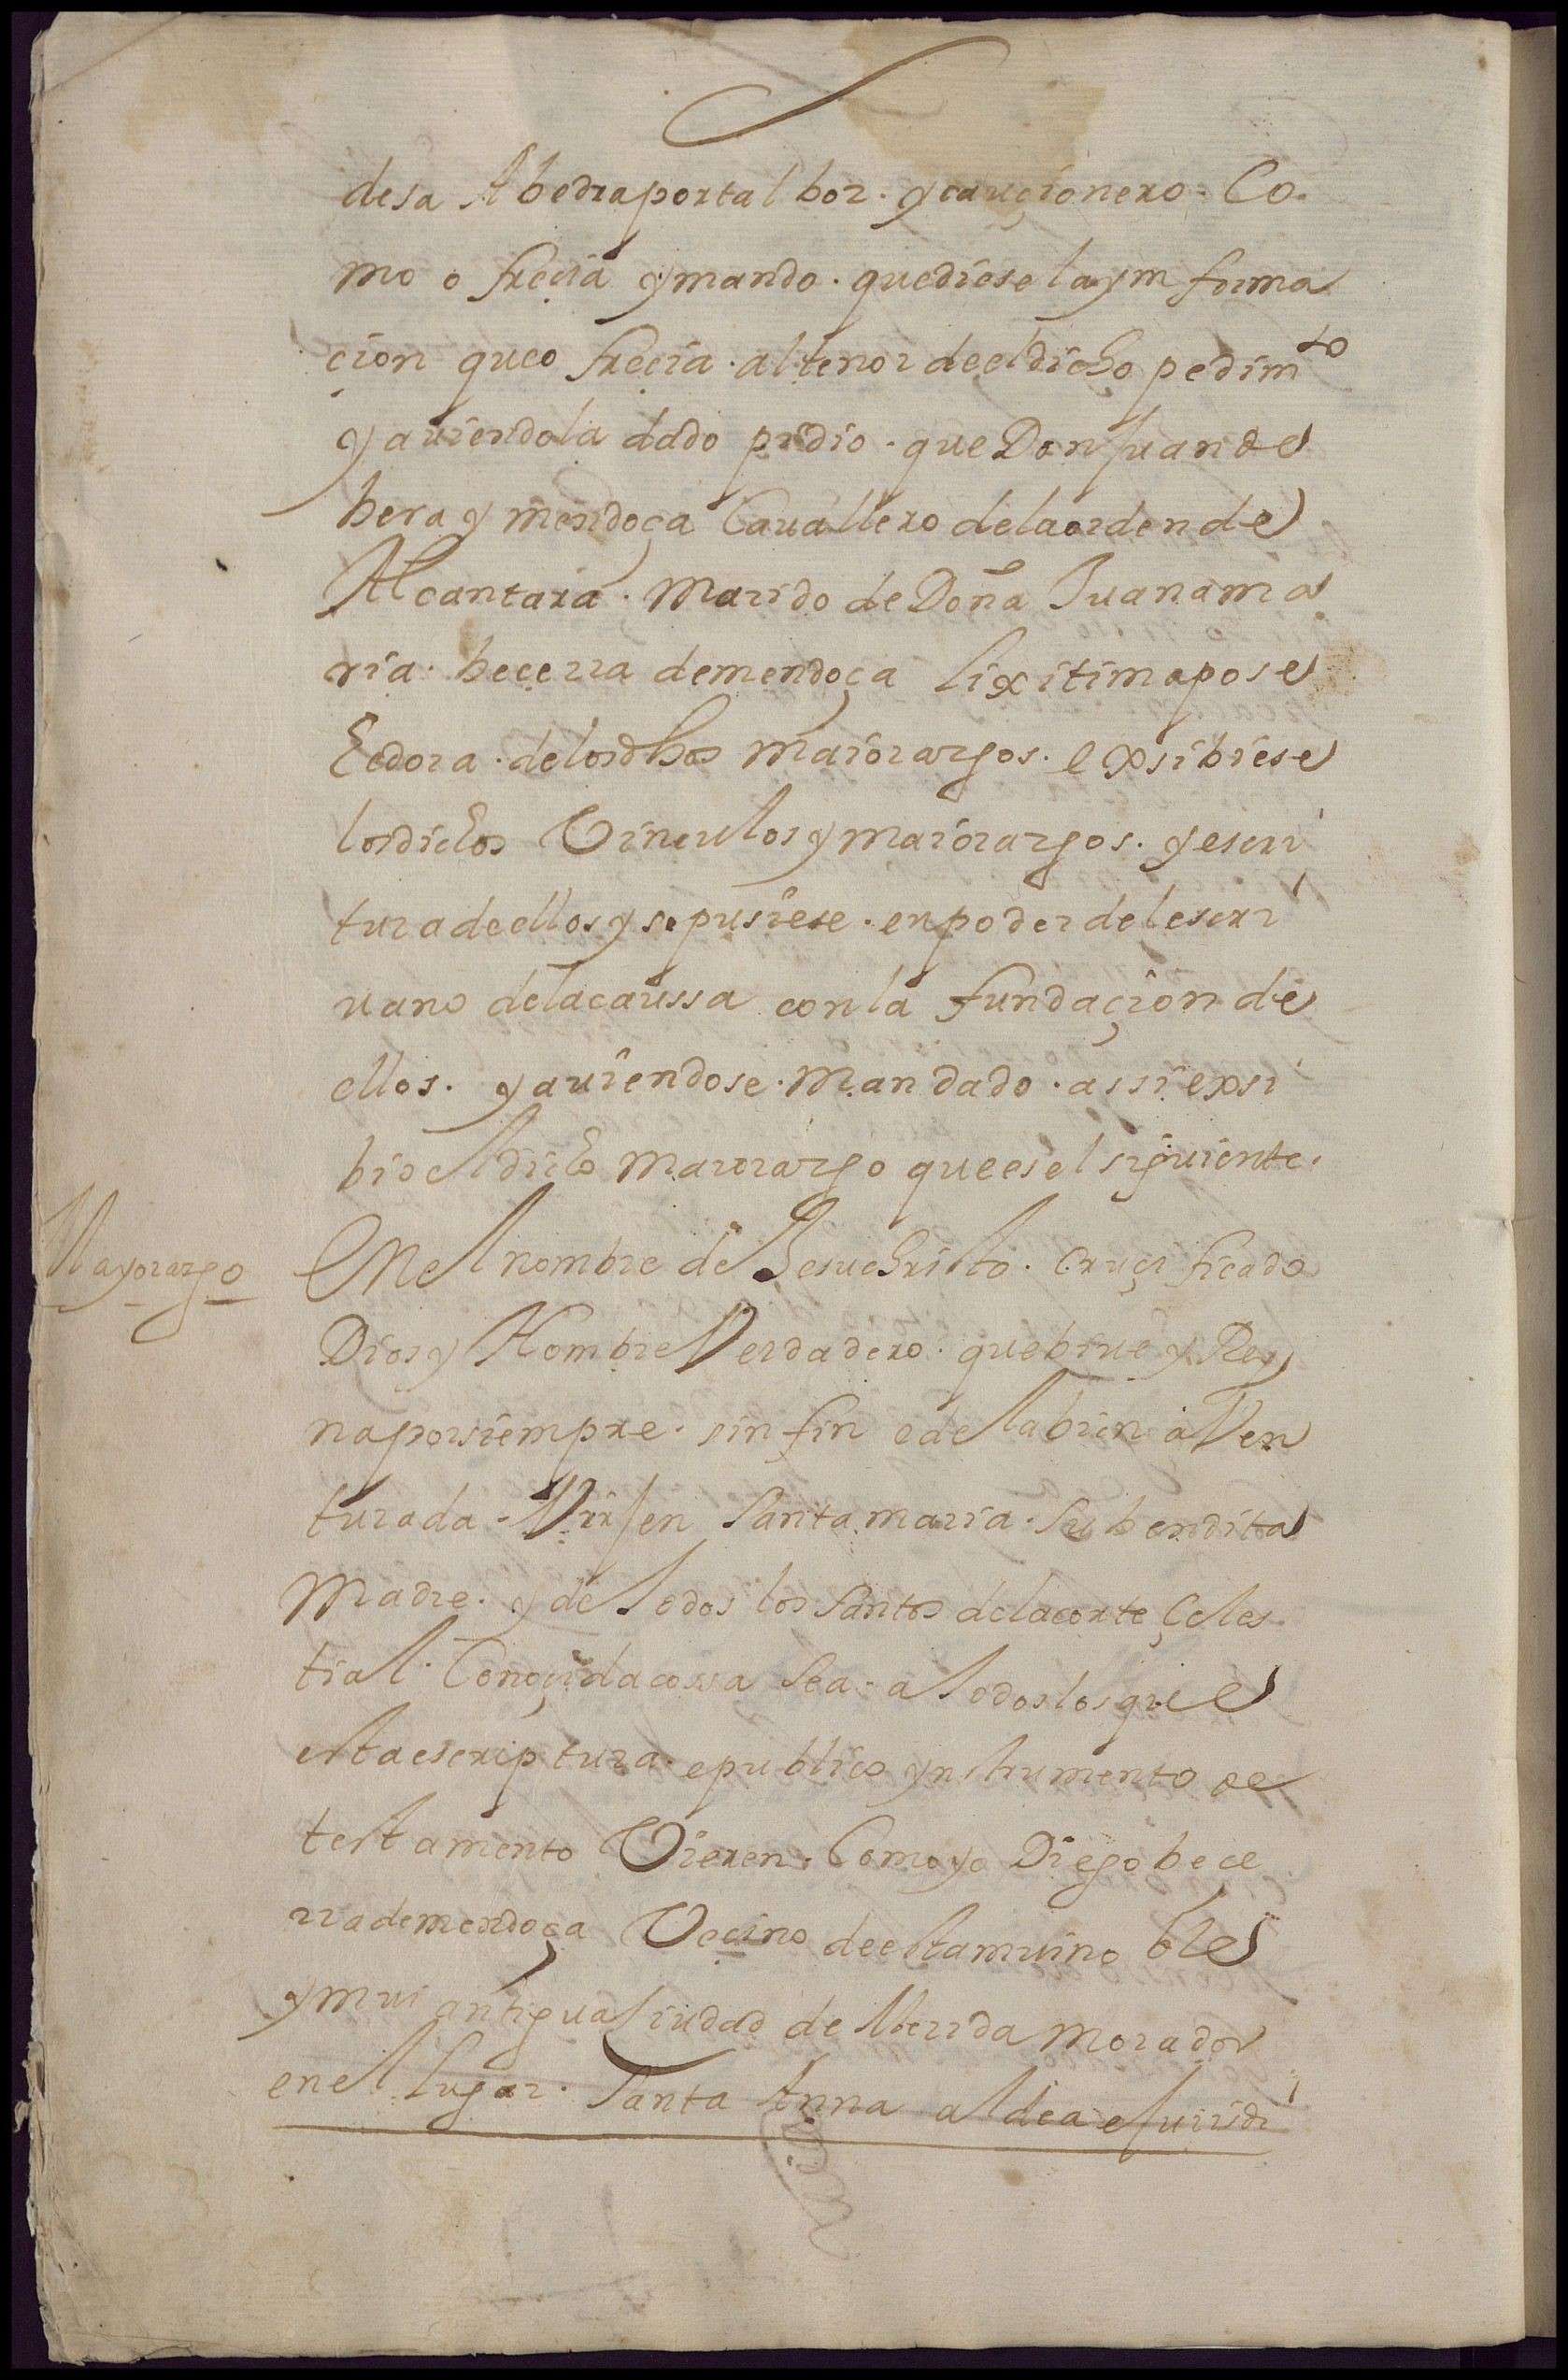 desa Abedra por tal hor. y cauçionero. Co
mo o freçia y mando. que diese la ymforma
çion que o freçia. al tenor de el dicho pedimto
y auiendola dado pidio. que Don Juan de
hera y mendoça Cauallero de la orden de
Alcantara. Marido de Doña Juana ma
ria. beçerra de mendoça lixitima pose
edora. de los dhos maiorazgos. exsibiese
los dichos Vinculos y maiorazgos. y escri
tura de ellos y se pusiese. en poder del escri
uano de la caussa con la fundaçion de
ellos. y auiendose. Mandado. assi exsi
bio el dicho maiorazgo que es el siguiente.
Mayorazgo
En el nombre de Jesuchristo. Cruçificado
Dios y Hombre Verdadero. que biue y Rey
na por siempre. sin fin e de la bien aVen
turada. Virjen Santa maria. Su bendita
Madre. y de todos los Santos de la corte Çeles
tial. Conoçida cossa Sea. a todos los que
esta escriptura. e publico ynstrumento de
testamento Vieren. Como yo Diego beçe
rra de mendoça Veçino de esta mui noble
y mui antigua Ciudad de Merida Morador
en el lugar. Santa Anna aldea e Juridi